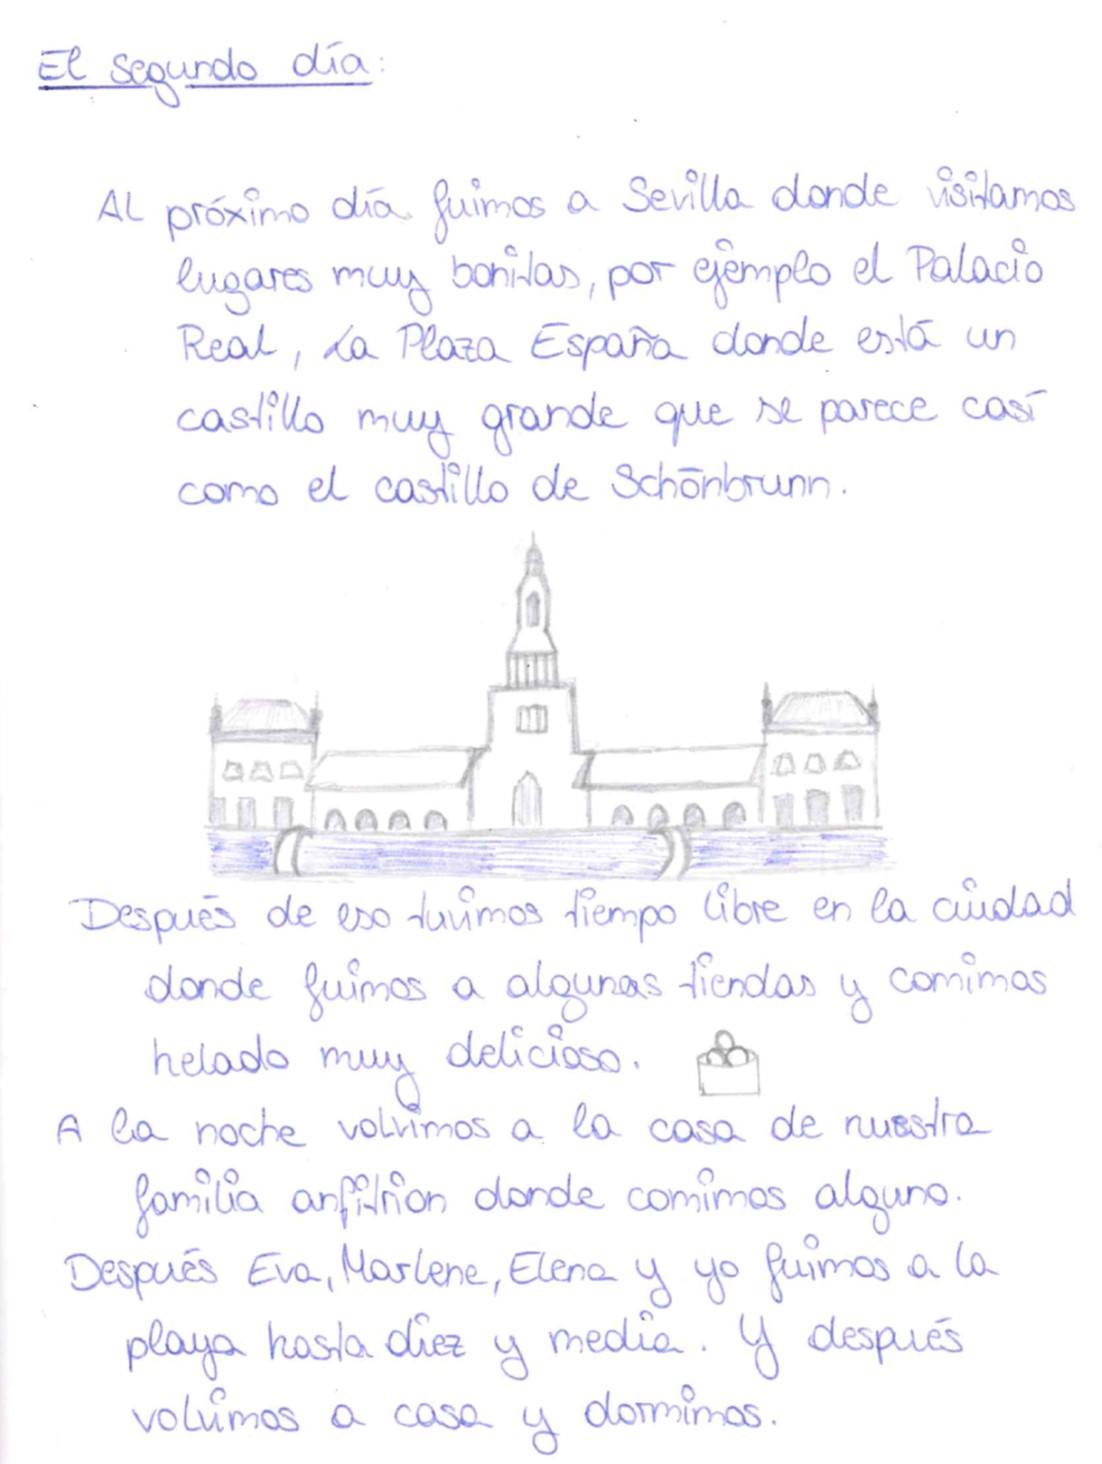 El segundo día:
Al próximo día fuimos a Sevilla donde visitamos
lugares muy bonitas, por ejemplo el Palacio
Real, La Plaza España donde está un
castillo muy grande que se parece casí
como el castillo de Schönbrunn.
Después de eso tuvimos tiempo libre en la ciudad
donde fuimos a algunas tiendas y comimos
helado muy delicioso.
A la noche volvimos a la casa de nuestra
familia anfitrion donde comimos alguno.
Después Eva, Marlene, Elena y yo fuimos a la
playa hasta diez y media. Y después
volvimos a casa y dormimos.